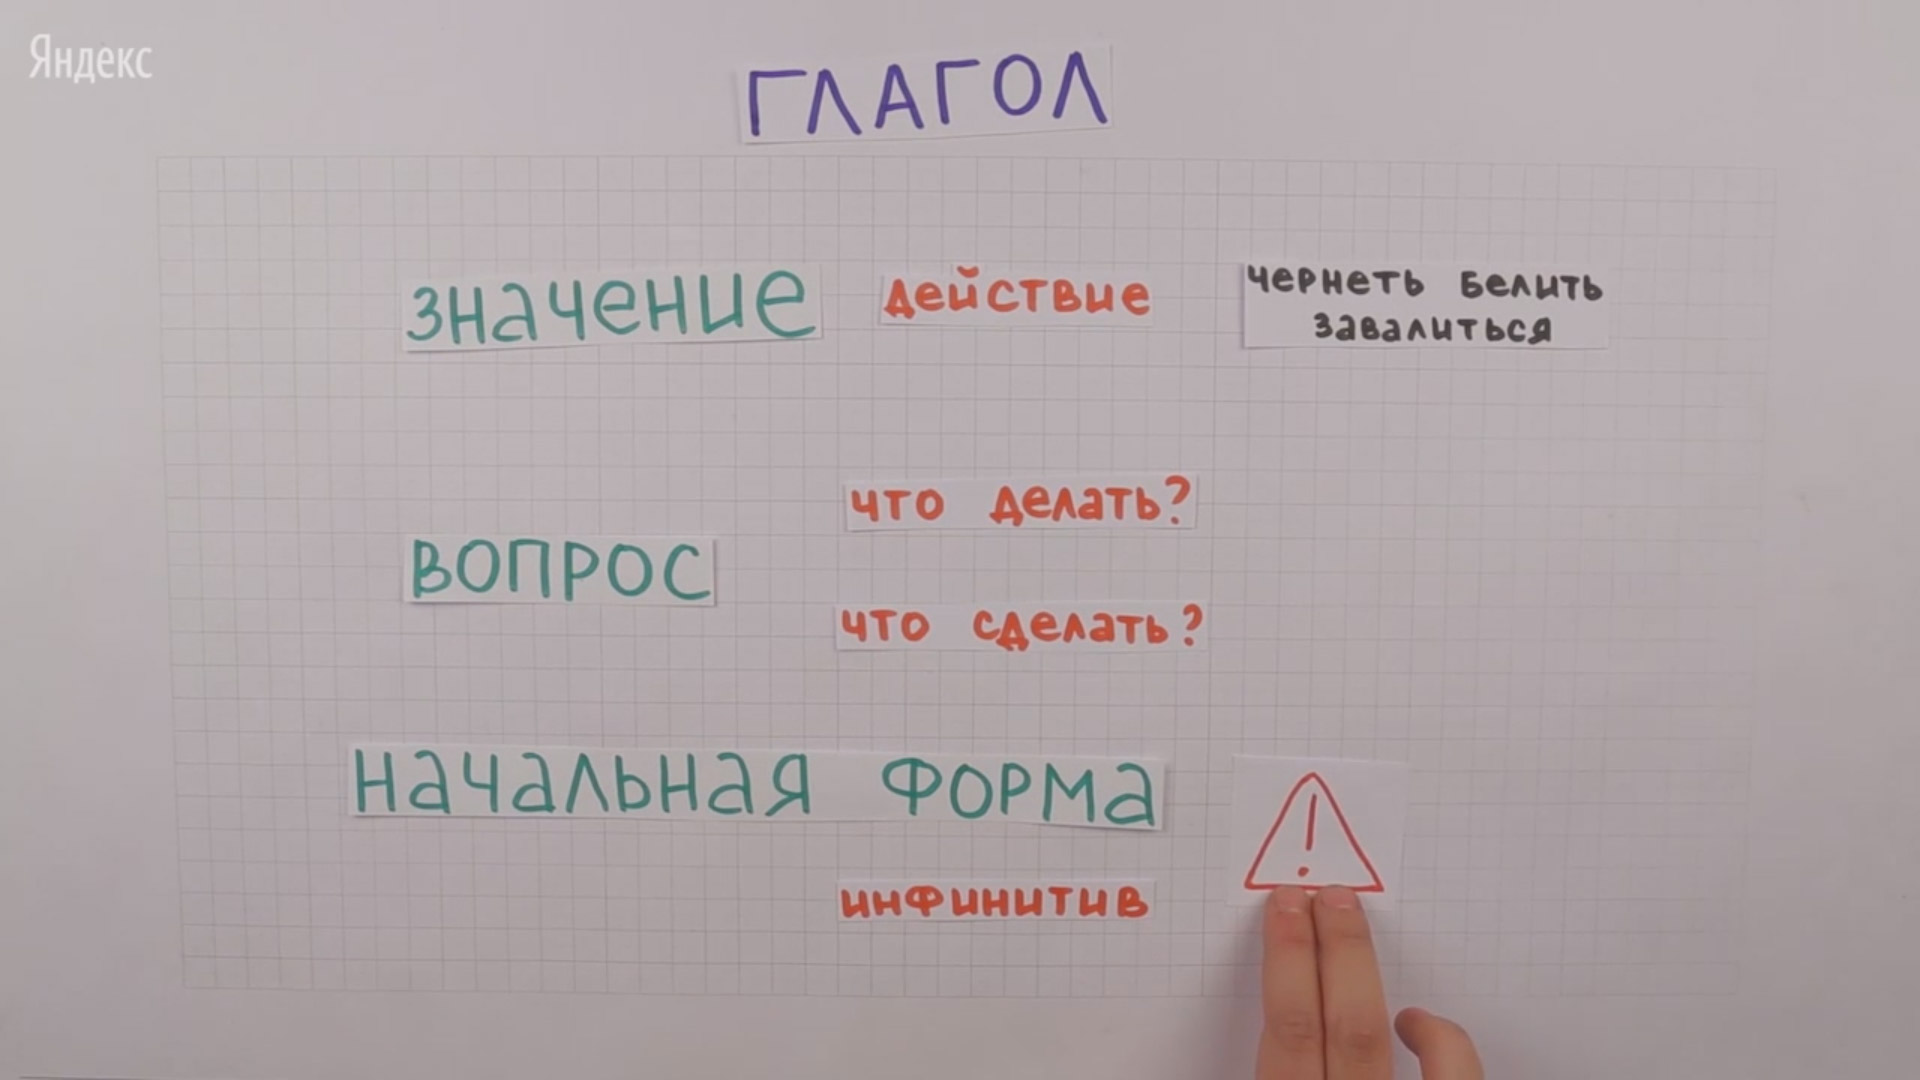 Яндекс
ГЛАГОЛ
значение действие чернеть белить
завалиться
вопрос
что делать?
что сделать?
начальная форма !
инфинитив